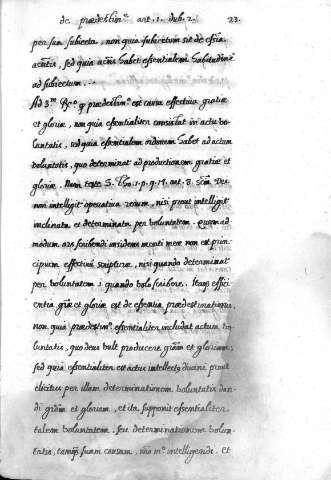 de prædestin.e art. 1. dub. 2. 23.
per sua subiecta, non quia subiectum sit de essia
accntis, sed quia accns habet essentialem habitudinē
ad subiectum.
Ad 3.m Rc.e q prædestin.o est causa effectiua gratiæ
et gloriæ, non quia essentialiter consistat in actu vo
luntatis, sed quia essentialem ordinem habet ad actum
voluntatis, quo determinat ad productionem gratiæ et
gloriæ. Nam teste S. Tho. 1. p. q. 14. art. 8. Deus
non intelligit operatiua rerum, nisi prout intelligit
inclinata et determinata per voluntatem. Quemad
modum ars scribendi insidens menti meæ non est prin
cipium effectiuū scripturæ, nisi quando determinat
per voluntatem, quando volo scribere. Itaq effici
entia gr̄æ et gloriæ est de essentia prædestinationis,
non quia prædestin.o essentialiter includat actum vo
luntatis, quo deus vult producere gr̄am et gloriam,
sed quia essentialiter est actus intellectq diuini prout
elicitus per illam determinationem voluntatis dan
di gr̄am et gloriam, et ita supponit essentialiter
talem voluntatem, seu determinationem volun
tatis, tamq̄ suam causam, in intelligendi. et